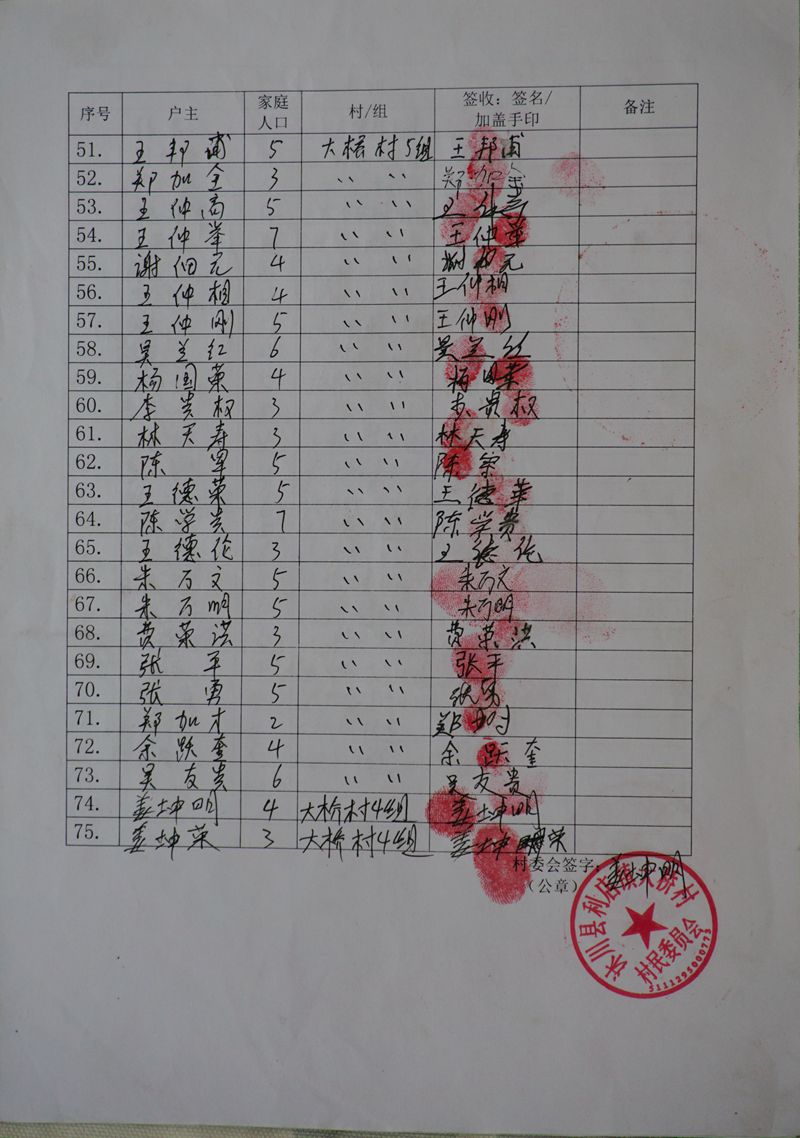 序号 户主 家庭人口 村/组 签收：签名/加盖手印 备注
51. 王邦甫 5 大桥村5组 王邦甫
52. 郑加全 3 〃 〃 郑加全
53. 王仲高 5 〃 〃 王仲高
54. 王仲举 7 〃 〃 王仲举
55. 谢伯元 4 〃 〃 谢伯元
56. 王仲相 4 〃 〃 王仲相
57. 王仲刚 5 〃 〃 王仲刚
58. 吴兰红 6 〃 〃 吴兰红
59. 杨国荣 4 〃 〃 杨国荣
60. 李贵权 3 〃 〃 李贵权
61. 林天寿 3 〃 〃 林天寿
62. 陈 5 〃 〃 陈
63. 王德荣 5 〃 〃 王德华
64. 陈学贵 7 〃 〃 陈学贵
65. 王德伦 3 〃 〃 王德伦
66. 朱万文 5 〃 〃 朱万文
67. 朱万明 5 〃 〃 朱万明
68. 费荣洪 3 〃 〃 费荣洪
69. 张平 5 〃 〃 张平
70. 张勇 5 〃 〃 张勇
71. 郑加才 2 〃 〃 郑加才
72. 余跃奎 4 〃 〃 余跃奎
73. 吴友贵 6 〃 〃 吴友贵
74. 姜坤明 4 大桥村4组 姜坤明
75. 姜坤荣 3 大桥村4组 姜坤荣
村委会签字：姜坤明
（公章）
沐川县利店镇大桥村
村民委员会
5111295000773